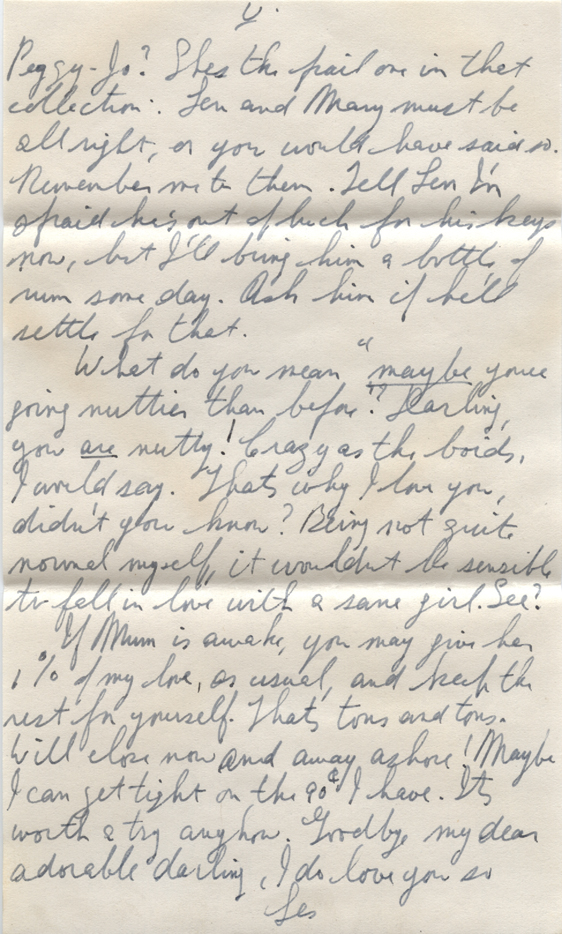 V.
Peggy-Jo? Shes the frail one in that
collection. Len and Mary must be
all right, or you would have said so.
Remember me to them. Tell Len I'm
afraid he's out of luck for his keys
now, but I'll bring him a bottle of
rum some day. Ask him if he'll
settle for that.
What do you mean "maybe youre
going nuttier than before"? Darling,
you are nutty! Crazy as the boids,
I would say. Thats why I love you,
didn't you know? Being not quite
normal myself, it wouldnt be sensible
to fall in love with a sane girl. See?
If Mum is awake, you may give her
1% of my love, as usual, and keep the
rest for yourself. Thats tons and tons.
Will close now and away ashore! Maybe
I can get tight on the 90¢ I have. Its
worth a try anyhow. Goodbye my dear
adorable darling, I do love you so
Les